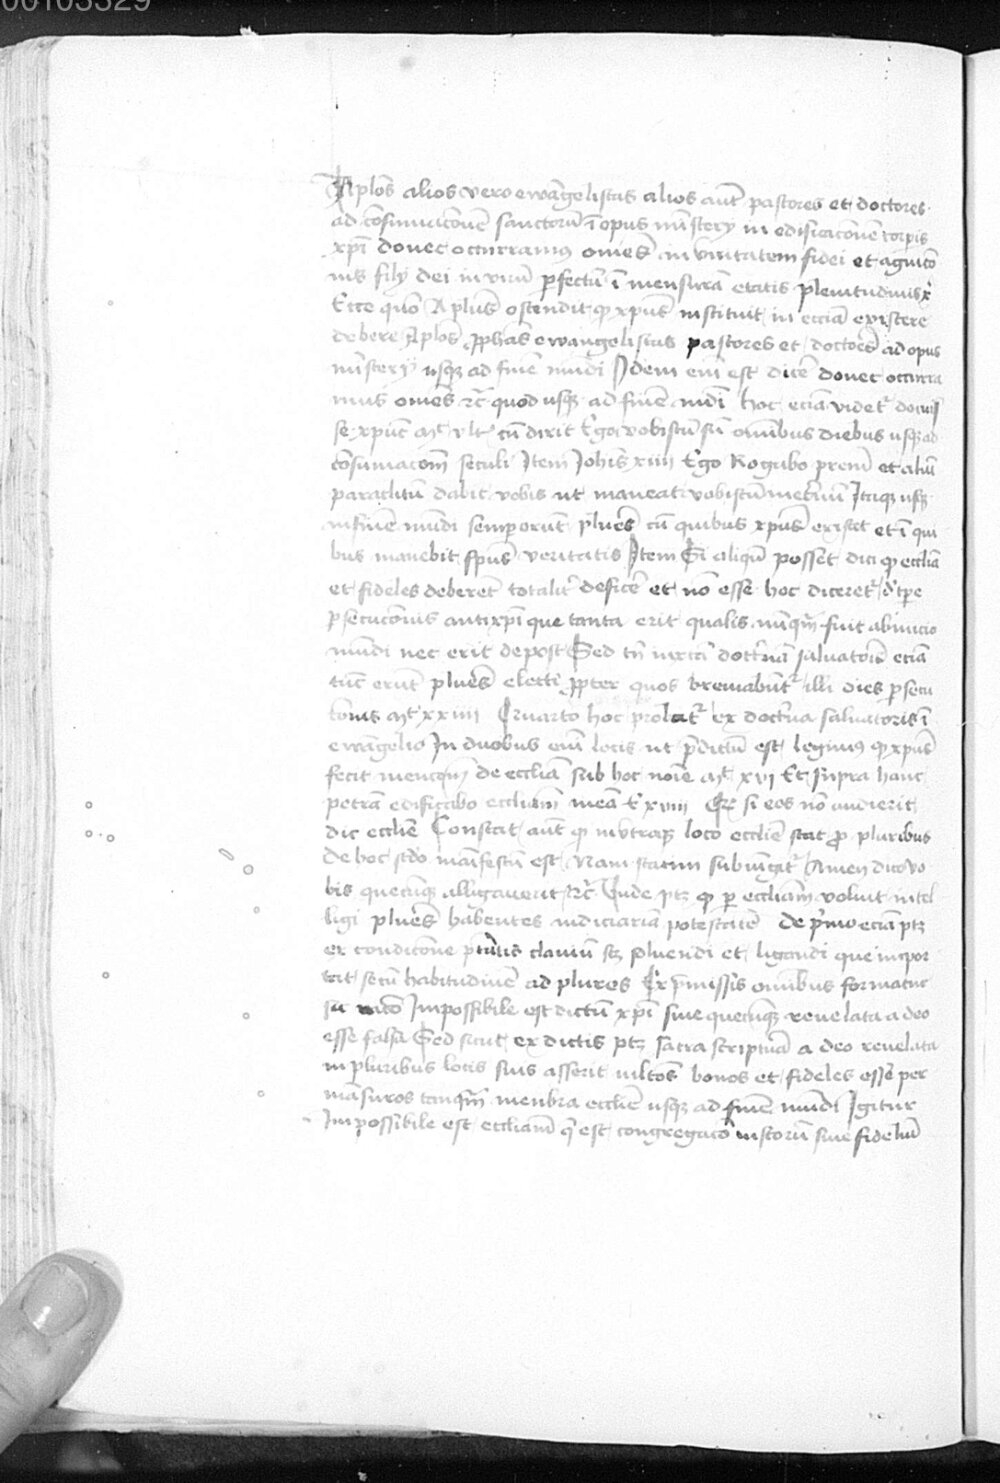 00103329
Aplos alios vero ewangelistas alios aut pastores et doctores
ad cosumacoem sanctoru i opus misterij in edificacoem corpis
xpi donec occurramus omes in vnitatem fidei et agnico
nis filij dei in viru pfectu i mensura etatis plenitudinis x
Ecce quo Aplus ostendit q xpus instituit in eccia existere
debere Aplos pphas ewangelistas pastores et doctores ad opus
misterij usq ad fine mudi Idem em est dice donec occurra
mus omes rc quod usq ad fine mudi hoc ecia videt docuis
se xpus mt vlt cu dixit Ego vobiscu su omibus diebus usq ad
cosumacom seculi Item Johis xiiii Ego Rogabo prem et aliu
paraclitu dabit vobis ut maneat vobiscu ineternu Itaq usq
in fine mudi semp erunt plures cu quibus xpus existet et i qui
bus manebit spus veritatis Item Si aliqn posset dici q ecclia
et fideles deberet totalit defice et no esse hoc diceret d tpe
psecucois antixpi que tanta erit qualis nuqm fuit ab inicio
mudi nec erit depost Sed tn iuxta doctrina saluatoris ecia
tuc erut plures electi ppter quos breuiabut illi dies psecu
cois mt xxiiii Quarto hoc probat ex doctrina saluatoris i
ewangelio In duobus em locis ut pdictu est legimus q xpus
fecit mencoem de ecclia sub hoc noie mt xvi Et supra hanc
petra edificabo eccliam mea Et xviii Q si eos no audierit
dic ecclie Constat aut q in vtraq loco ecclie stat p pluribus
de hoc scdo manifestu est Nam statim subiugit Amen dico vo
bis quecuq alligauerit rc Unde ptz q p eccliam voluit intel
ligi plures habentes iudiciaria potestate de primo ecia ptz
ex condicone clauiu scz soluendi et ligandi que impor
tat secu habitudine ad plures Ex pmissis omibus formatur
raco Impossibile est dictu xpi siue quecuq reuelata a deo
esse falsa Sed sicut ex dictis ptz sacra scriptura a deo reuelata
in pluribus locis suis asserit multos bonos et fideles esse per
masuros tanqm menbra ecclie usq ad fine mudi Igitur
Impossibile est eccliam q est congregaco iustoru siue fideliu